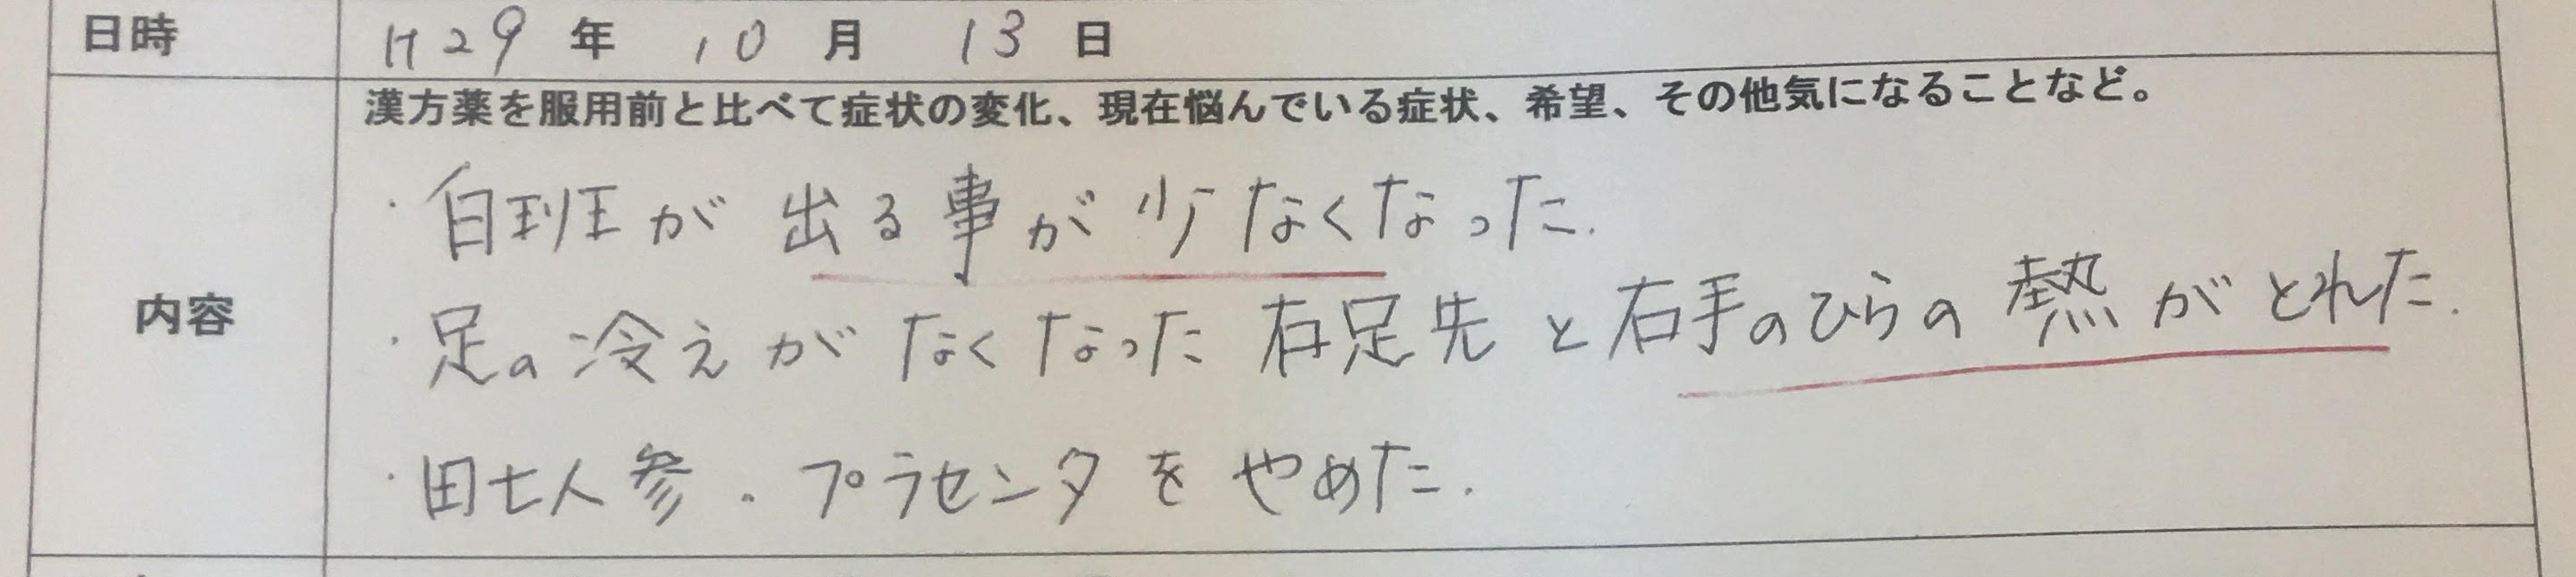 日時 H29年 10月 13日
漢方薬を服用前と比べて症状の変化、現在悩んでいる症状、希望、その他気になることなど。
・白班が出る事が少なくなった.
内容
・足の冷えがなくなった 右足先と右手のひらの熱がとれた.
・田七人参.プラセンタをやめた.